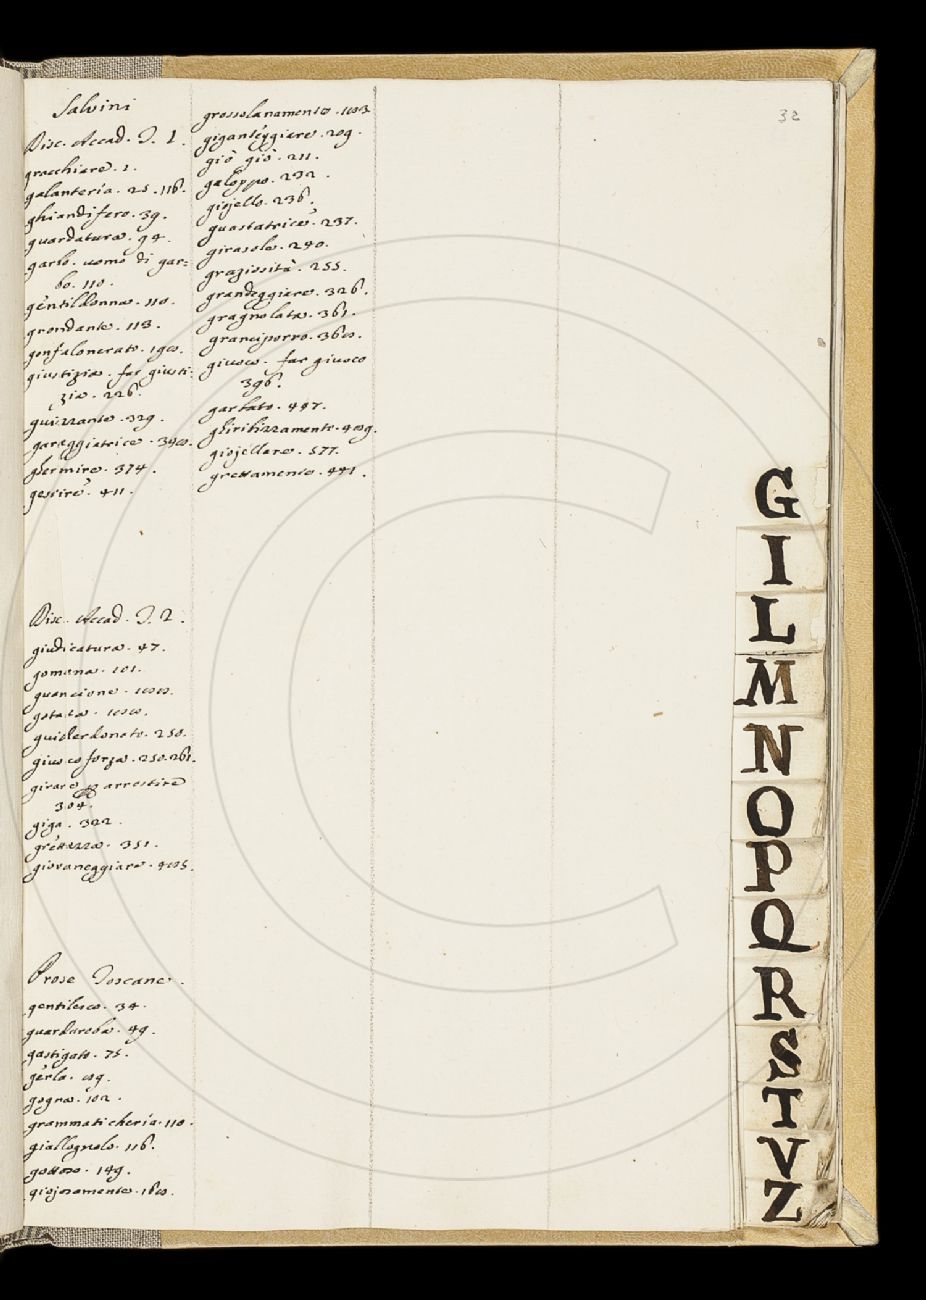 Salvini
Disc. Accad. T. 1.
gracchiare. 1.
galanteria. 25. 116.
ghiandifero. 39.
guardatura. 94.
garbo. uomo di gar=
bo. 110.
gentildonna. 110.
grondante. 113.
gonfalonerato.
giustizia. far giusti-
zia. 226.
guizzante. 329.
gareggiatrice.
ghermire. 374.
gestire. 411.
Disc. Accad. T. 2.
giudicatura. 47.
gomena. 101.
guancione.
gotata.
guiderdonato. 250.
giuoco forza. 250. 261.
girare arrostire
304.
giga. 322.
grettezza. 351.
giovaneggiare.
Prose Toscane.
gentilesco. 34.
guardaroba. 49.
gastigato. 75.
gerla.
gogna. 102.
grammaticheria. 110.
giallognolo. 116.
gottoso. 149.
giojosamente.
grossolanamente.
giganteggiare. 209.
giò giò. 211.
galoppo. 232.
giojello. 236.
guastatrice. 237.
girasole. 240.
graziosità. 255.
grandeggiare. 326.
gragnolata. 361.
granciporro.
giuoco. far giuoco
396.
garbato. 447.
ghiribizzamento.
giojellare. 577.
grettamente. 441.
32
G
I
L
M
N
O
P
Q
R
S
T
V
Z